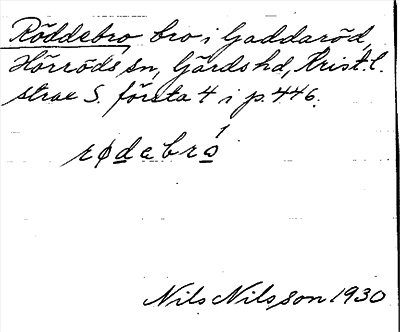 Röddebro, bro i Gaddaröd,
Hörröds sn, Gärds hd, Krist. l.
strax S. första 4 i p. 446.
rødebró
Nils Nilsson 1930